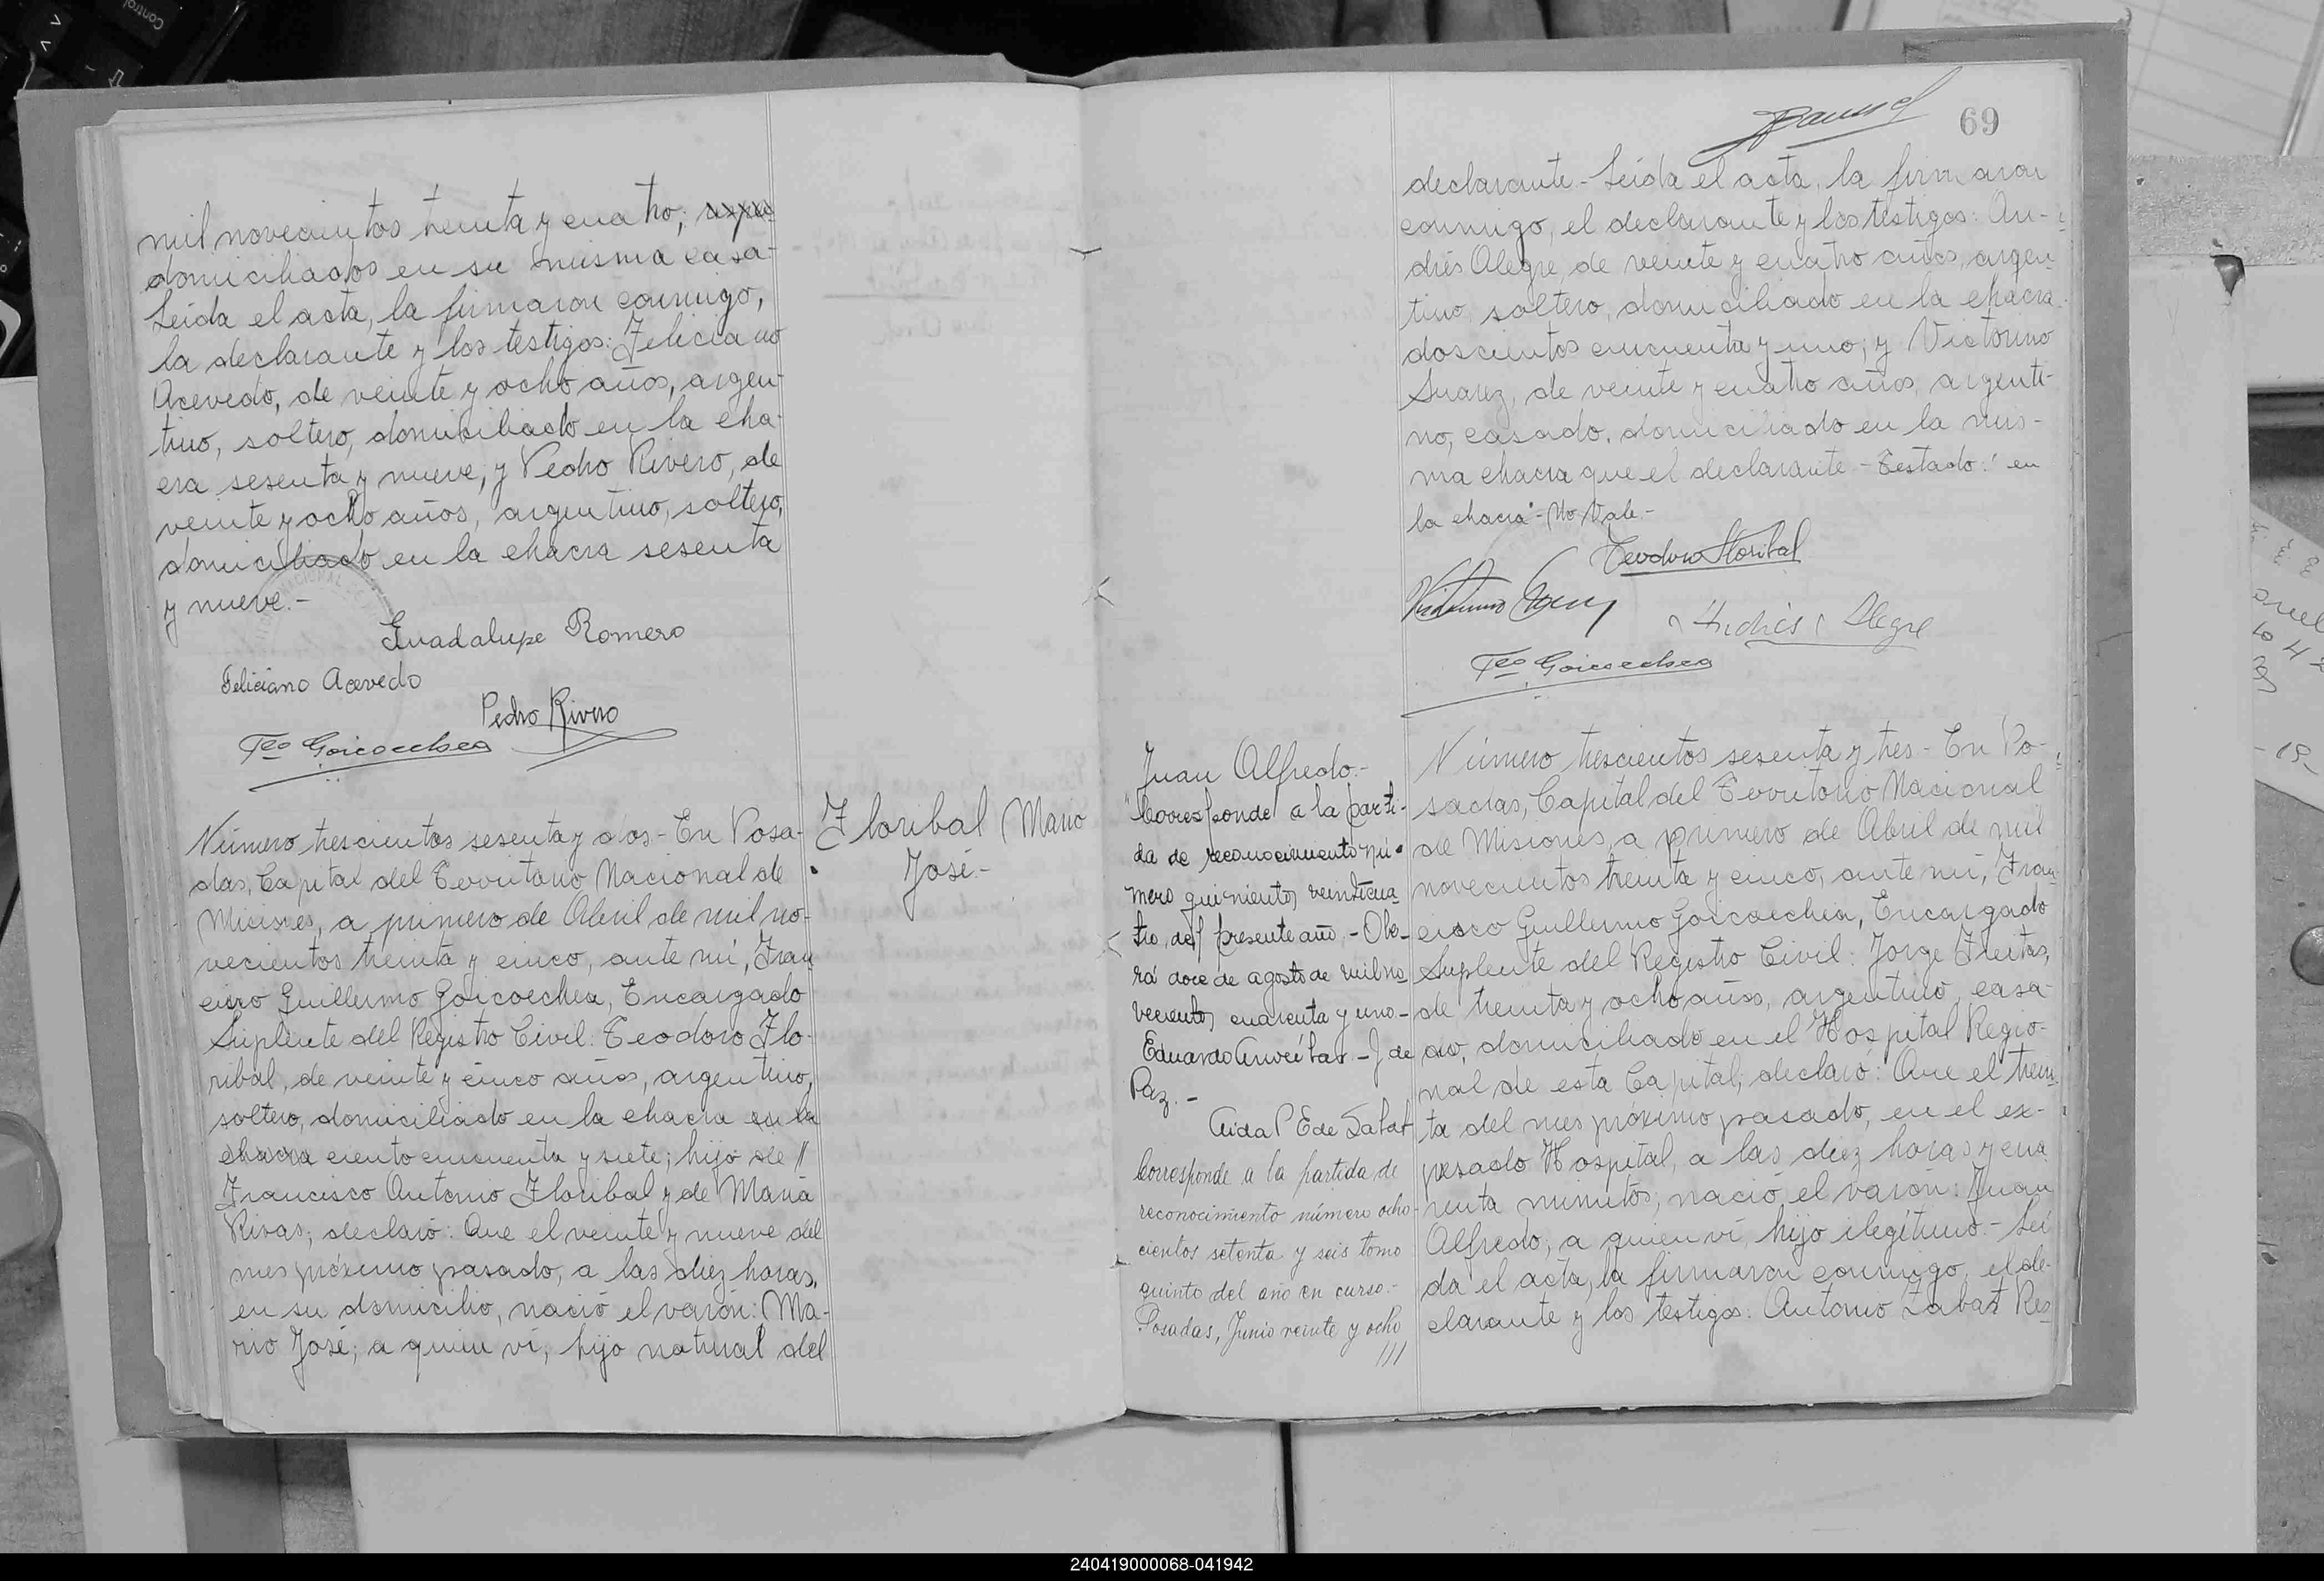 mil novecientos treinta y cuatro;
domiciliados en su misma casa-
Leida el acta, la firmaron conmigo,
la declarante y los testigos: Feliciano
Acevedo, de veinte y ocho años, argen-
tino, soltero, domiciliado en la cha-
cra sesenta y nueve, y Pedro Rivero, de
veinte y ocho años, argentino, soltero,
domiciliado en la chacra sesenta
y nueve.-
Guadalupe Romero
Feliciano Acevedo
Pedro Rivero
Fco Goicoechea
Número trescientos sesenta y dos - En Posa-
das, Capital del Territorio Nacional de
Misiones, a primero de Abril de mil no-
vecientos treinta y cinco, ante mí, Fran
cisco Guillermo Goicoechea, Encargado
Suplente del Registro Civil: Teodoro Flo-
ribal, de veinte y cinco años, argentino,
soltero, domiciliado en la chacra en la
chacra ciento cincuenta y siete; hijo de //
Francisco Antonio Floribal y de María
Rivas; declaró: Que el veinte y nueve del
mes próximo pasado, a las diez horas,
en su domicilio, nació el varón: Ma-
rio José; a quien ví, hijo natural del
Floribal Mario
José.-
69
declarante - Leida el acta, la firmaron
conmigo, el declarante y los testigos: An-
drés Alegre, de veinte y cuatro años, argen
tino, soltero, domiciliado en la chacra
doscientos cincuenta y uno; y Victorino
Suarez, de veinte y cuatro años, argenti-
no, casado, domiciliado en la mis-
ma chacra que el declarante - Testado: "en
la chacra" - No Vale.-
Teodoro Floribal
Andrés Alegre
Fco Goicoechea
Juan Alfredo.-
"Corresponde a la parti-
da de reconocimiento nú-
mero quinientos veinticua
tro, del presente año, - Obe-
rá doce de agosto de mil no
vecientos cuarenta y uno-
Eduardo - J de
Paz. -
Aida P E de
Corresponde a la partida de
reconocimiento número ocho-
cientos setenta y seis tomo
quinto del año en curso.-
Posadas, Junio veinte y ocho
///
Número trescientos sesenta y tres - En Po-
sadas, Capital del Territorio Nacional
de Misiones, a primero de Abril de mil
novecientos treinta y cinco, ante mí, Fran-
cisco Guillermo Goicoechea, Encargado
Suplente del Registro Civil: Jorge Freitas,
de treinta y ocho años, argentino, casa-
do, domiciliado en el Hospital Regio-
nal de esta Capital; declaró: Que el trein
ta del mes próximo pasado, en el ex-
presado Hospital, a las diez horas y cua
renta minutos, nació el varón: Juan
Alfredo, a quien ví, hijo ilegítimo - Leí
da el acta, la firmaron conmigo, el de-
clarante y los testigos: Antonio Zabat Res
240419000068-041942